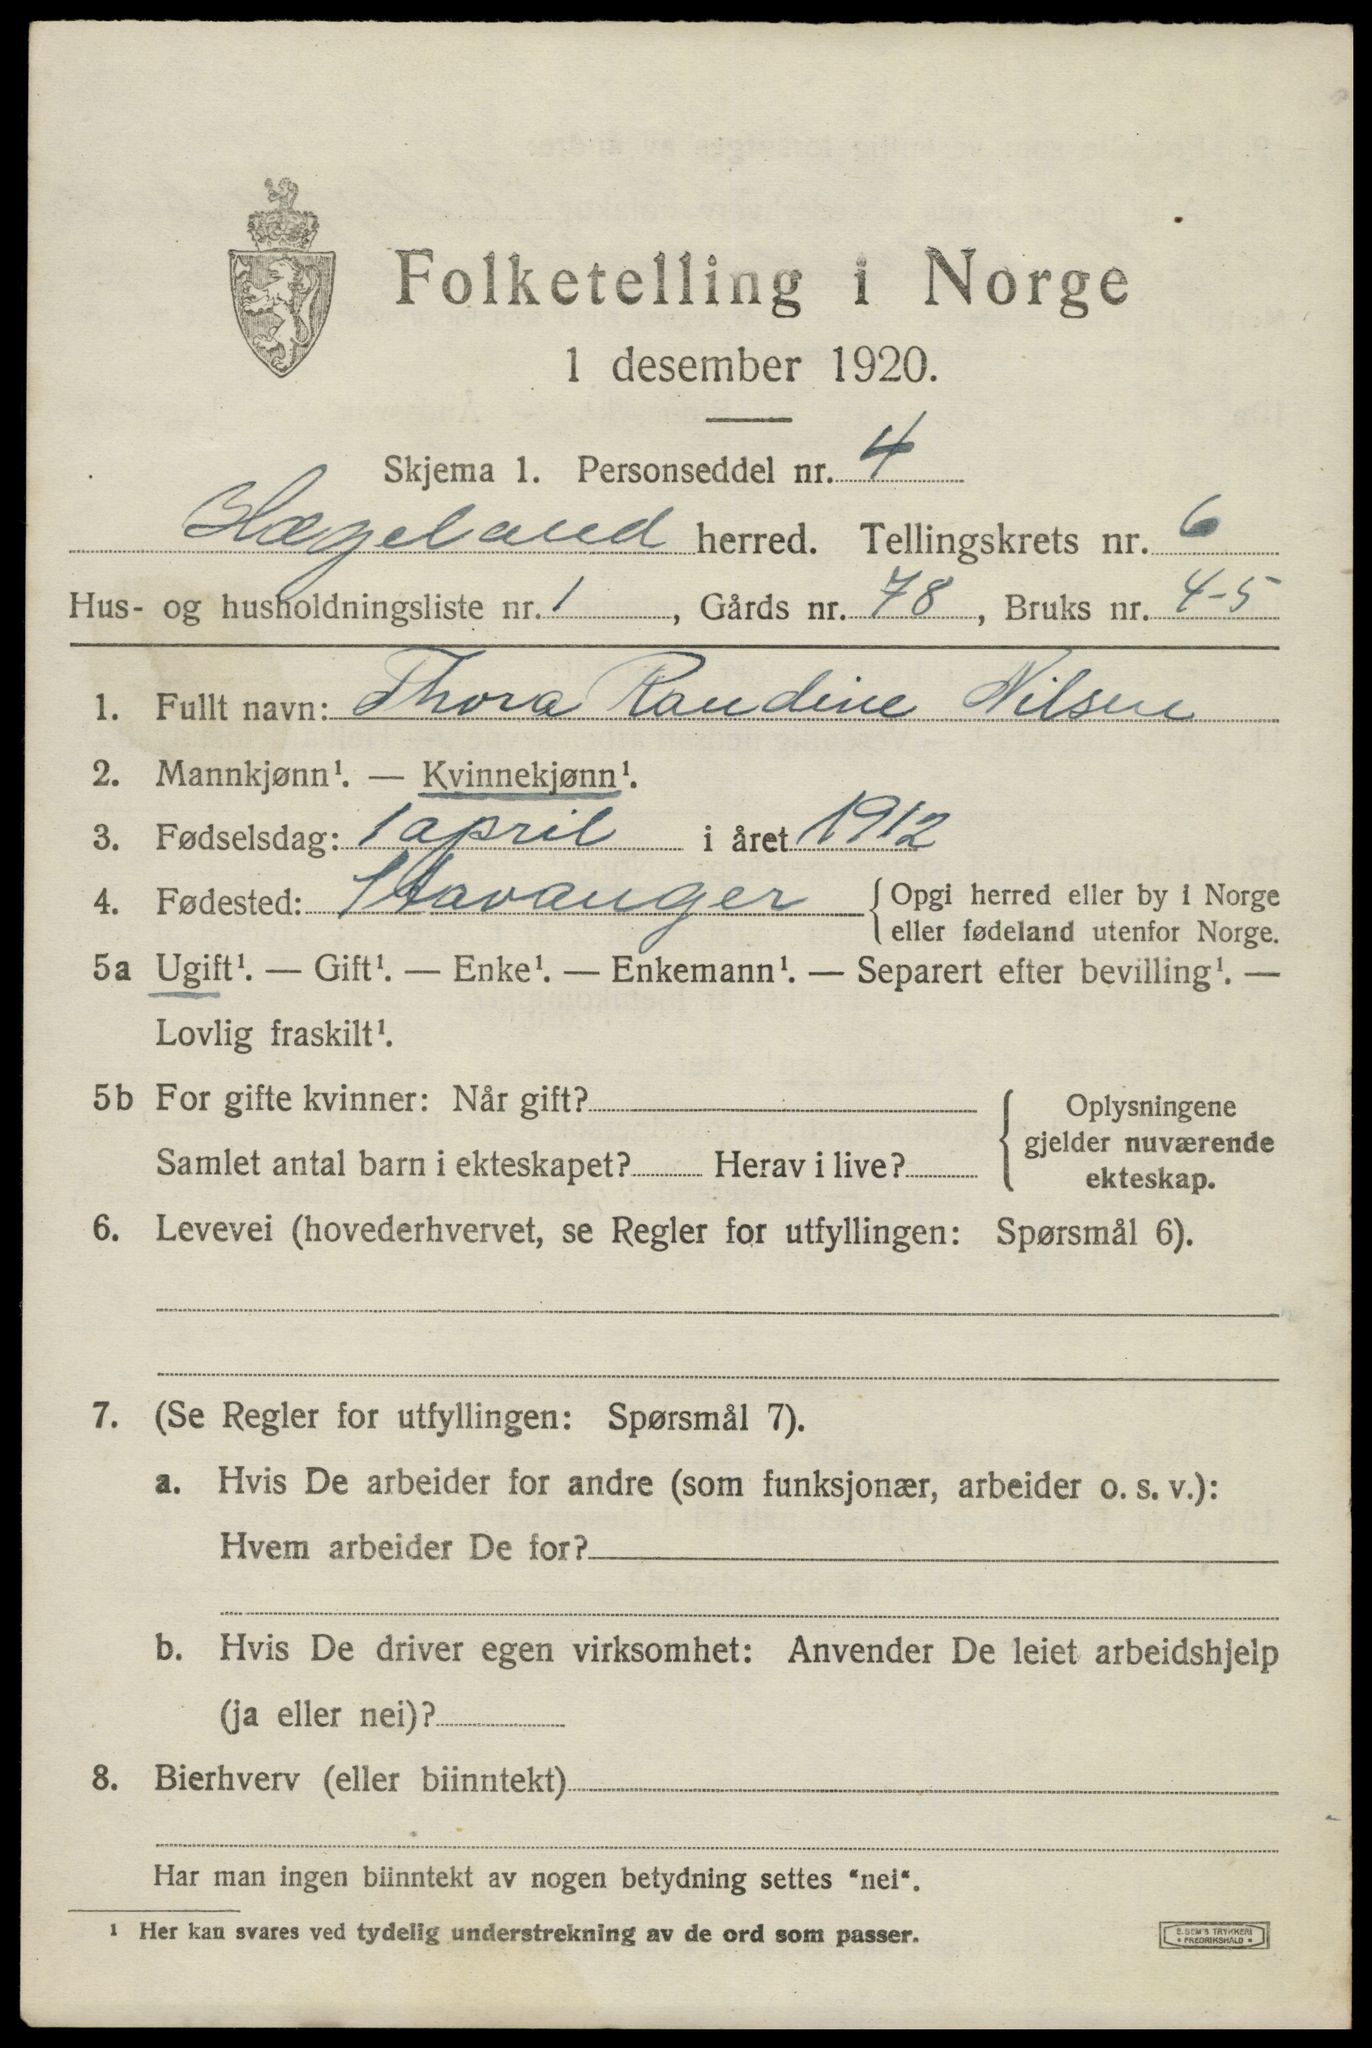 Folketelling i Norge
1 desember 1920.
Skjema 1. Personseddel nr. 4
Hægeland herred. Tellingskrets nr. 6
Hus- og husholdningsliste nr. 1, Gårds nr. 78, Bruks nr. 4-5
1. Fullt navn: Thora Randine Nilsen
2. Mannkjønn¹. — Kvinnekjønn¹.
3. Fødselsdag: 1 april i året 1912
4. Fødested: Stavanger { Opgi herred eller by i Norge
eller fødeland utenfor Norge.
5a Ugift¹. — Gift¹. — Enke¹. — Enkemann¹. — Separert efter bevilling¹. —
Lovlig fraskilt¹.
5b For gifte kvinner: Når gift?
Samlet antal barn i ekteskapet? Herav i live?
Oplysningene
gjelder nuværende
ekteskap.
6. Levevei (hovederhvervet, se Regler for utfyllingen: Spørsmål 6).
7. (Se Regler for utfyllingen: Spørsmål 7).
a. Hvis De arbeider for andre (som funksjonær, arbeider o. s. v.):
Hvem arbeider De for?
b. Hvis De driver egen virksomhet: Anvender De leiet arbeidshjelp
(ja eller nei)?
8. Bierhverv (eller biinntekt)
Har man ingen biinntekt av nogen betydning settes "nei".
¹ Her kan svares ved tydelig understrekning av de ord som passer.
E. SEM'S TRYKKERI
• FREDRIKSHALD •